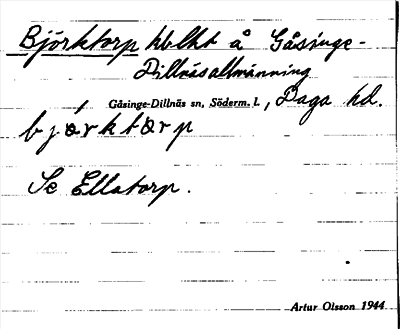 Björktorp hblht å Gåsinge-
Dillnäsallmänning
Gåsinge-Dillnäs sn, Söderm. l., Daga hd.
bjørktørp
Se Ellatorp.
Artur Olsson 1944